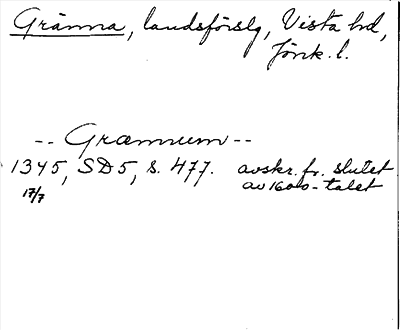 Gränna, landsförslg, Vista hd,
Jönk. l.
-- Grœmum --
1345, SD5, s. 477. avskr. fr. slutet
17/7 av 1600-talet